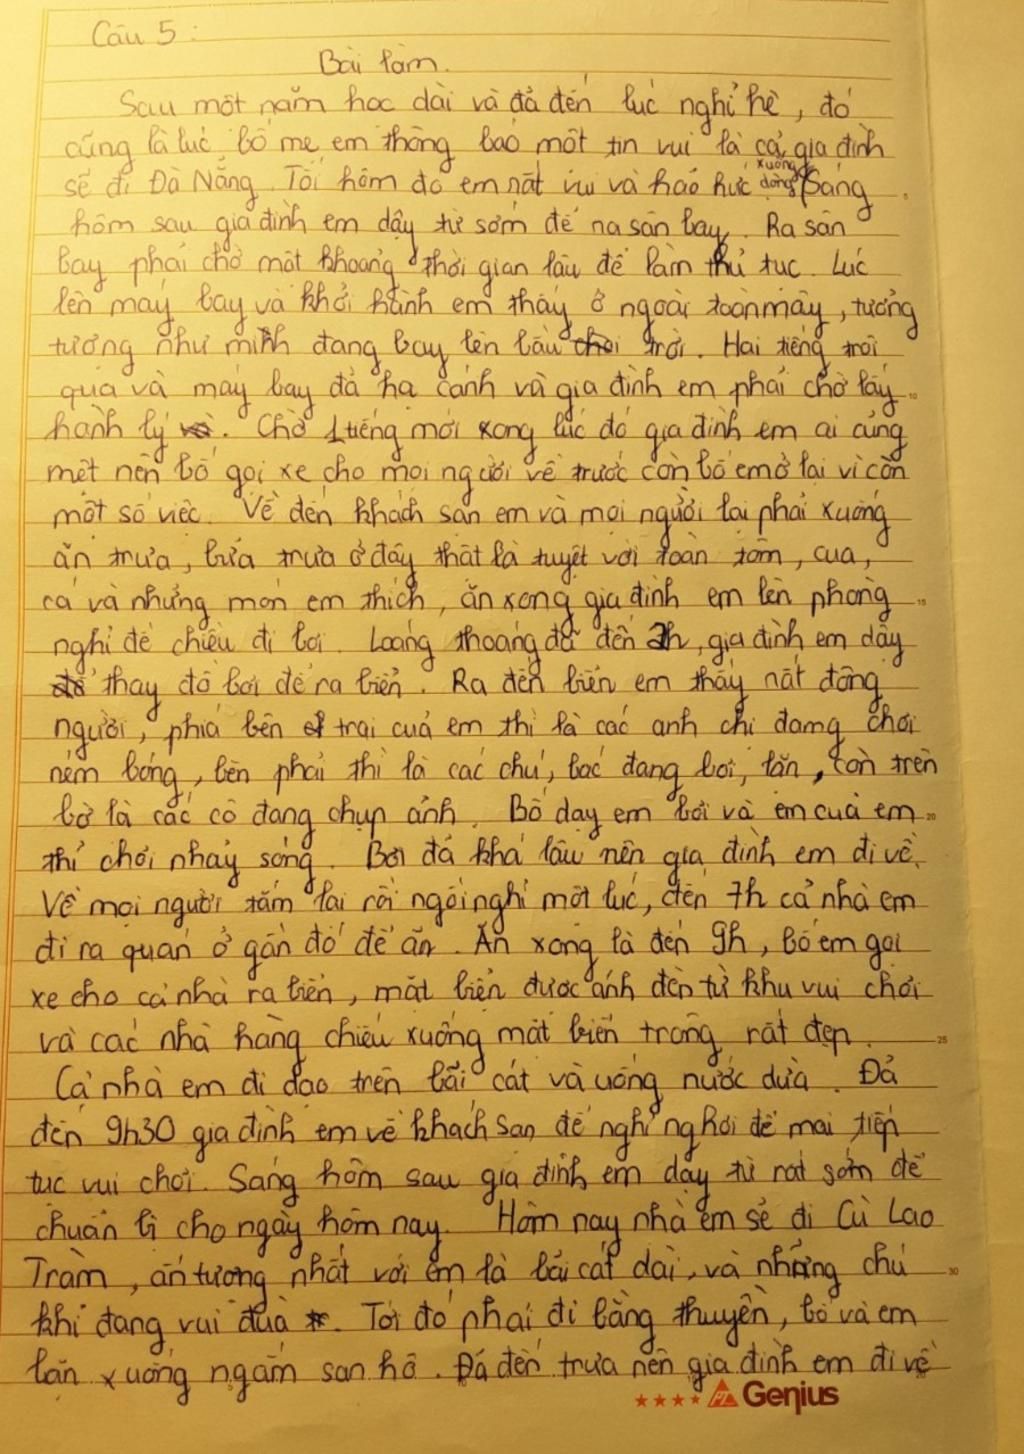 Câu 5 :
Bài làm.
Sau một năm học dài và đã đến lúc nghỉ hè, đó
cũng là lúc bố mẹ em thông báo một tin vui là cả gia đình
sẽ đi Đà Nẵng. Tối hôm đó em rất vui và háo hức xuống dòng Sáng
hôm sau gia đình em dậy từ sớm để ra sân bay. Ra sân
bay phải chờ một khoảng thời gian lâu để làm thủ tục. Lúc
lên máy bay và khởi hành em thấy ở ngoài toàn mây, tưởng
tượng như mình đang bay lên bầu trời. Hai tiếng trôi
qua và máy bay đã hạ cánh và gia đình em phải chờ lấy
hành lý. Chờ 1 tiếng mới xong lúc đó gia đình em ai cũng
mệt nên bố gọi xe cho mọi người về trước còn bố em ở lại vì còn
một số việc. Về đến khách sạn em và mọi người lại phải xuống
ăn trưa, bữa trưa ở đây thật là tuyệt vời toàn tôm, cua,
cá và những món em thích, ăn xong gia đình em lên phòng
nghỉ để chiều đi bơi. Loáng thoáng đã đến 2h, gia đình em dậy
thay đồ bơi để ra biển. Ra đến biển em thấy rất đông
người, phía bên trái của em thì là các anh chị đang chơi
ném bóng, bên phải thì là các chú, bác đang bơi, lặn, còn trên
bờ là các cô đang chụp ảnh. Bố dạy em bơi và em của em
thì chơi nhảy sóng. Bơi đã khá lâu nên gia đình em đi về.
Về mọi người tắm lại rồi ngồi nghỉ một lúc, đến 7h cả nhà em
đi ra quán ở gần đó để ăn. Ăn xong là đến 9h, bố em gọi
xe cho cả nhà ra biển, mặt biển được ánh đèn từ khu vui chơi
và các nhà hàng chiếu xuống mặt biển trông rất đẹp.
Cả nhà em đi dạo trên bãi cát và uống nước dừa. Đã
đến 9h30 gia đình em về khách sạn để nghỉ ngơi để mai tiếp
tục vui chơi. Sáng hôm sau gia đình em dậy từ rất sớm để
chuẩn bị cho ngày hôm nay. Hôm nay nhà em sẽ đi Cù Lao
Tràm, ấn tượng nhất với em là bãi cát dài, và những chú
khỉ đang vui đùa. Tới đó phải đi bằng thuyền, bố và em
lặn xuống ngắm san hô. Đã đến trưa nên gia đình em đi về
Genius